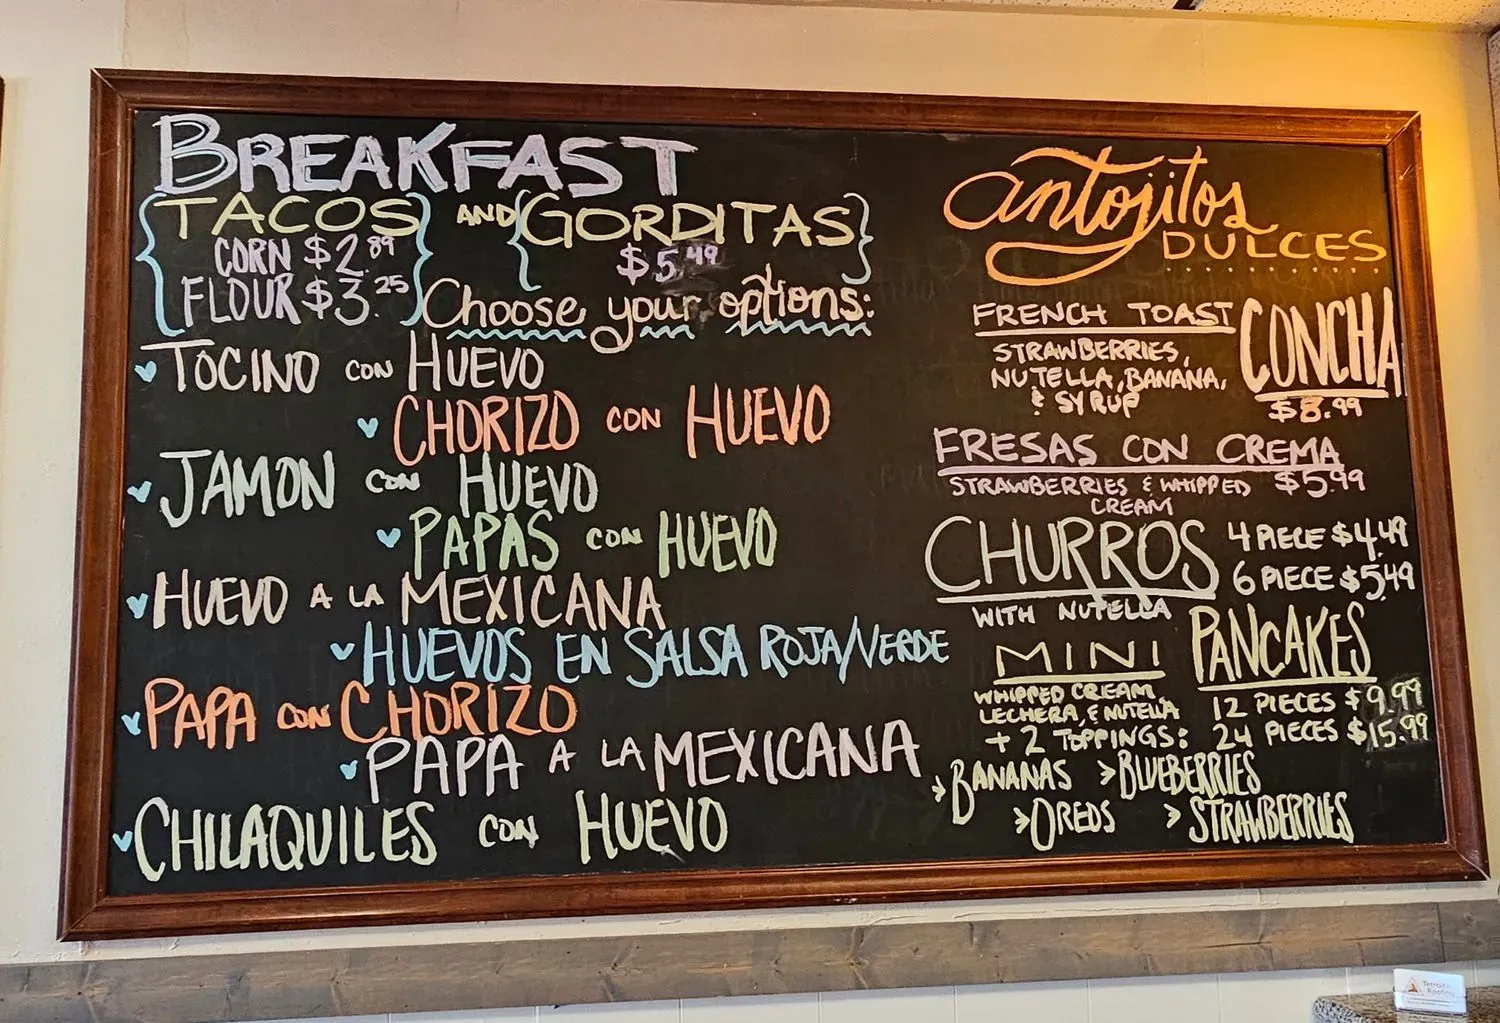 BREAKFAST
TACOS AND GORDITAS
CORN $2.89
FLOUR $3.25
$5.49
Choose your options:
TOCINO CON HUEVO
CHORIZO CON HUEVO
JAMON CON HUEVO
PAPAS CON HUEVO
HUEVO A LA MEXICANA
HUEVOS EN SALSA ROJA/VERDE
PAPA CON CHORIZO
PAPA A LA MEXICANA
CHILAQUILES CON HUEVO
antojitos
DULCES
FRENCH TOAST CONCHA
STRAWBERRIES,
NUTELLA, BANANA,
& SYRUP
$8.99
FRESAS CON CREMA
STRAWBERRIES & WHIPPED $5.99
CREAM
CHURROS
4 PIECE $4.49
6 PIECE $5.49
WITH NUTELLA
MINI PANCAKES
WHIPPED CREAM,
LECHERA, & NUTELLA
+ 2 TOPPINGS:
12 PIECES $9.99
24 PIECES $15.99
BANANAS
BLUEBERRIES
OREOS
STRAWBERRIES